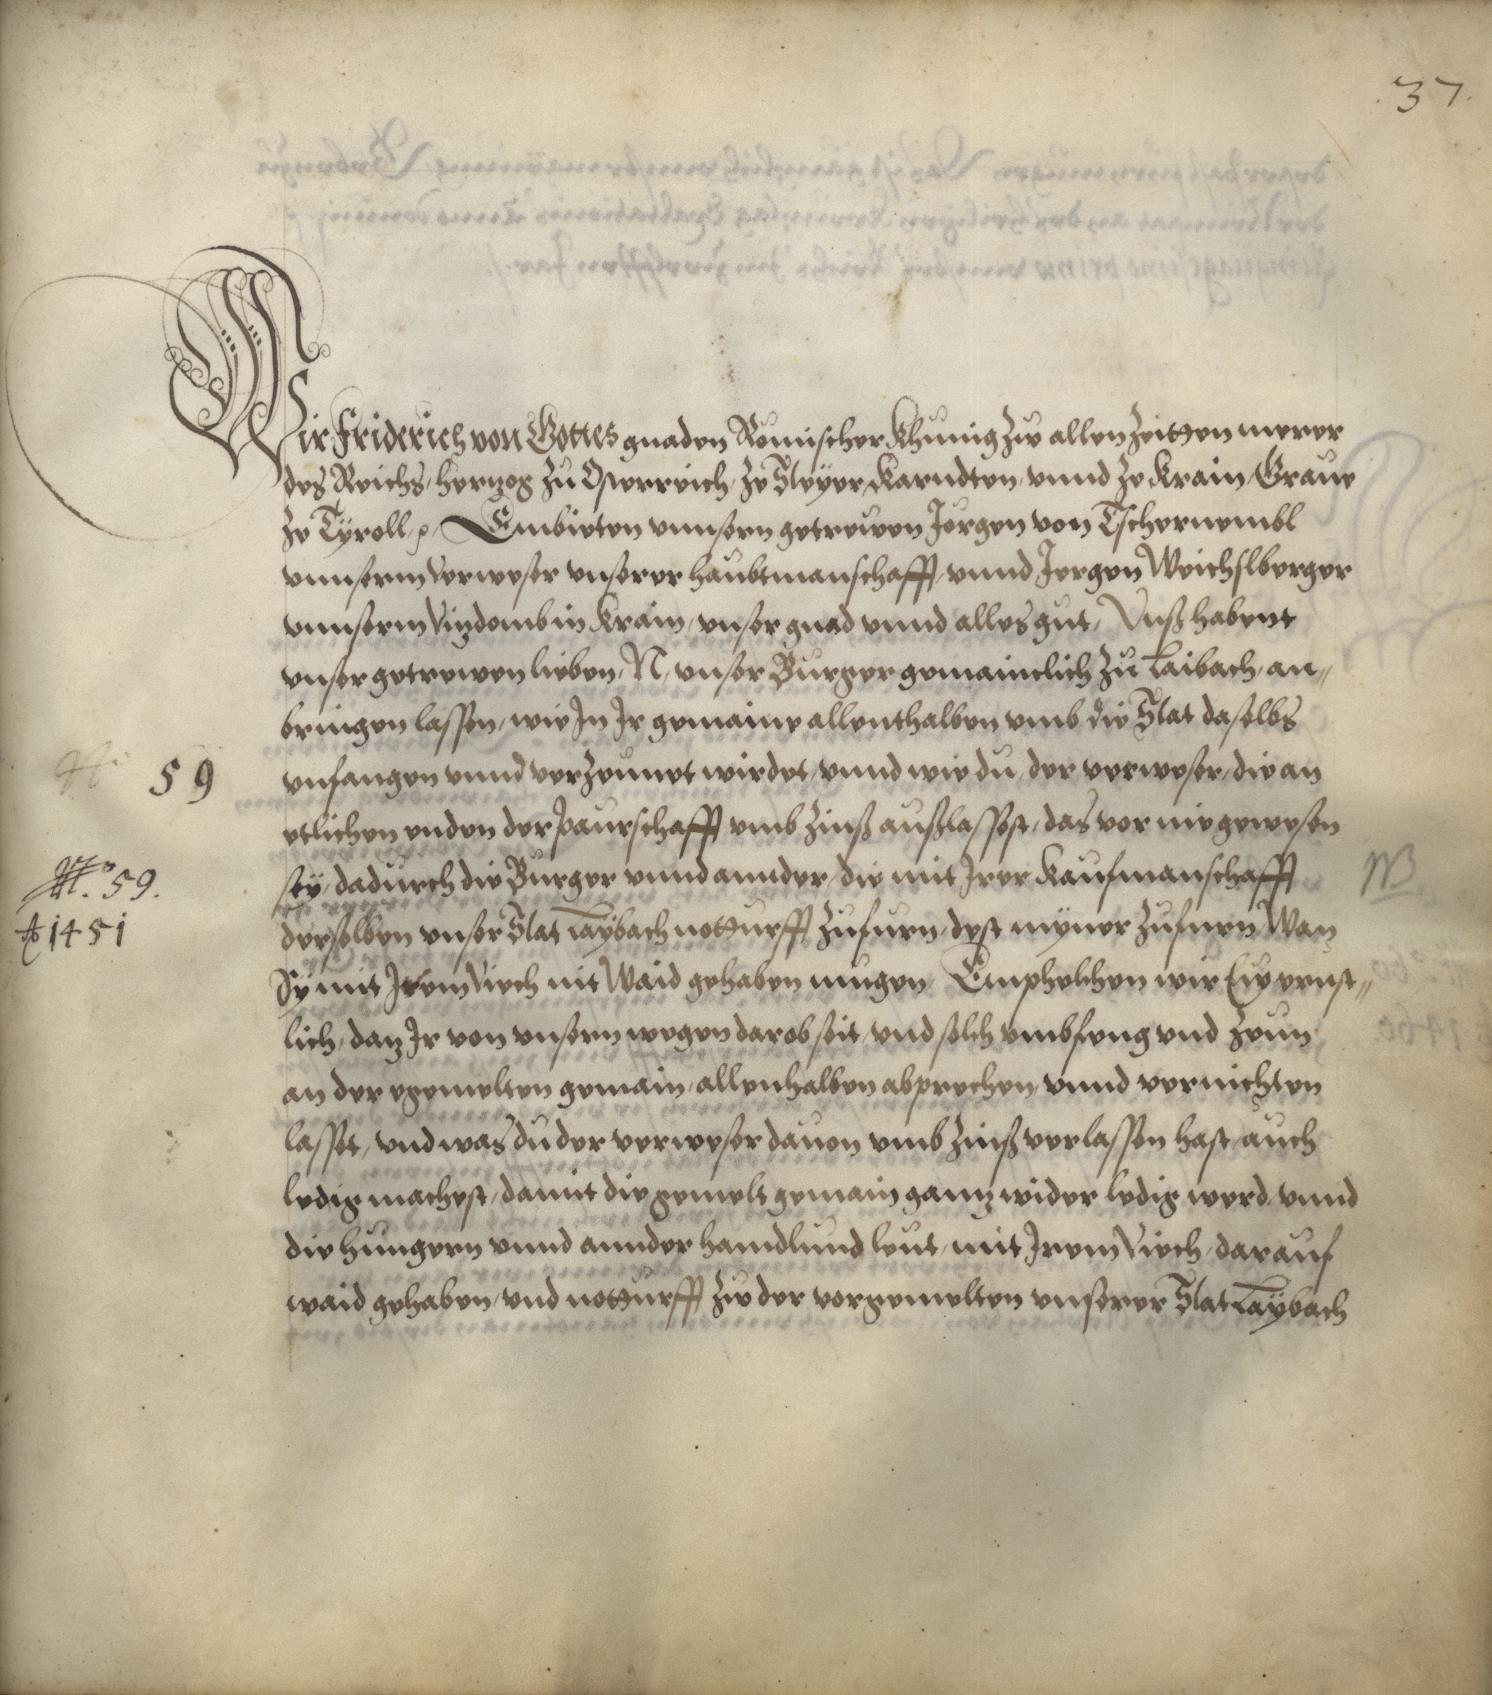 37.
Wir Friderich von Gottes gnaden Römischer Khunig Zw allen Zeitten merer
des Reichs, Hertzog Zu Osterreich, Ze Steyer, Karndten, vnnd Ze Krain, Graue
Ze Tÿroll, Embieten vnnsern getrewen Jorgen von Tschernembl
vnnserm Verweser vnserer Haubtmanschafft, vnnd Jorgen Weichslberger
vnnserm Vizdomb in Krain, vnser gnad vnnd alles gut, Vnß habent
vnser getrewen lieben, N, vnser Burger gemainclich Zu Laibach, an„
bringen lassen, wie In Ir gemaine allenthalben vmb die Stat daselbs
59
vnfangen vnnd verzeunet wirdet, vnnd wie du, der verweser, die an
etlichen enden der Paurschafft vmb Zinß außlassest, das vor nie gewesen
No. 59.
sey, dadurch die Burger vnnd annder, die mit Irer Kaufmanschafft
NB
Ao 1451
derselben vnser Stat Laÿbach notturfft Zufurn, dest mÿner Zufuren, Wan
Sy mit Irem Viech nit Waid gehaben mugen, Emphelchen wir Ew ernst„
lich, daz Ir von vnsern wegen darob seit, vnd solch vmbfeng vnd Zeun
an der egemelten gemain, allenhalben abprechen, vnnd vernichten
lasset, vnd was du der verweser dauon vmb Zinß verlassen hast, auch
ledig machest, damit die gemelt gemain gantz wider ledig werd, vnnd
die Hungern vnnd annder Handlund leut, mit Irem Viech, darauf
waid gehaben, vnd notturfft Zw der vorgemelten vnserer Stat Laÿbach